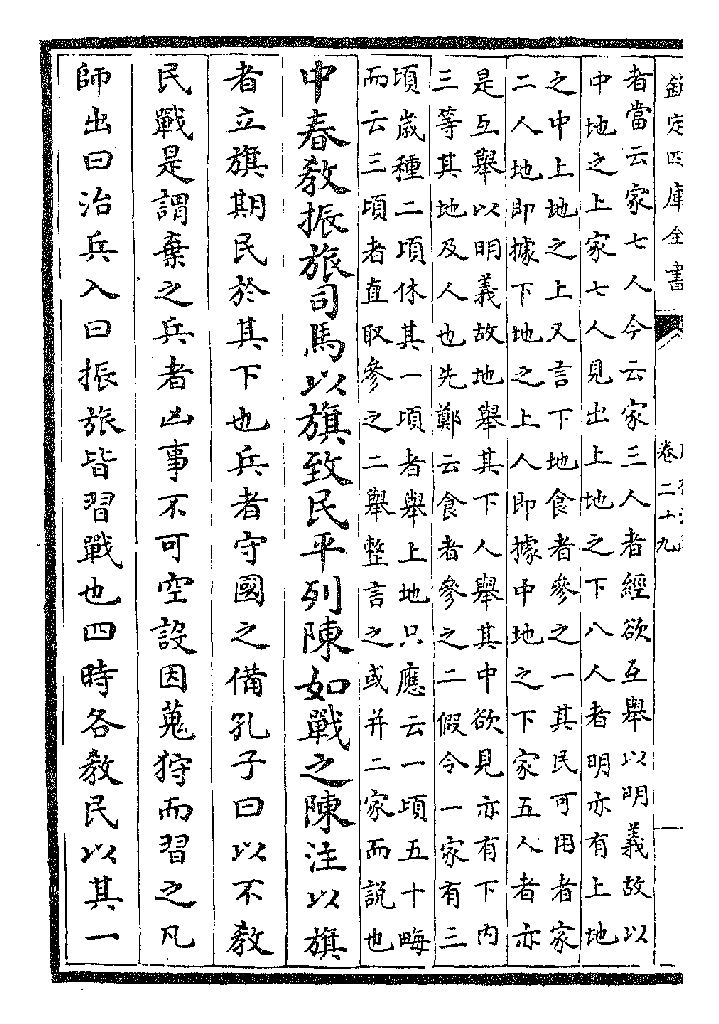 欽定四庫全書
卷二十九
者當云家七人今云家三人者經欲互舉以明義故以
中地之上家七人見出上地之下八人者明亦有上地
之中上地之上又言下地食者參之一其民可用者家
二人地即據下地之上人即據中地之下家五人者亦
是互舉以明義故地舉其下人舉其中欲見亦有下內
三等其地及人也先鄭云食者參之二假令一家有三
頃歲種二頃休其一頃者舉上地只應云一頃五十畮
而云三頃者直取參之二舉整言之或并二家而說也
中春教振旅司馬以旗致民平列陳如戰之陳注以旗
者立旗期民於其下也兵者守國之備孔子曰以不教
民戰是謂棄之兵者凶事不可空設因蒐狩而習之凡
師出曰治兵入曰振旅皆習戰也四時各教民以其一